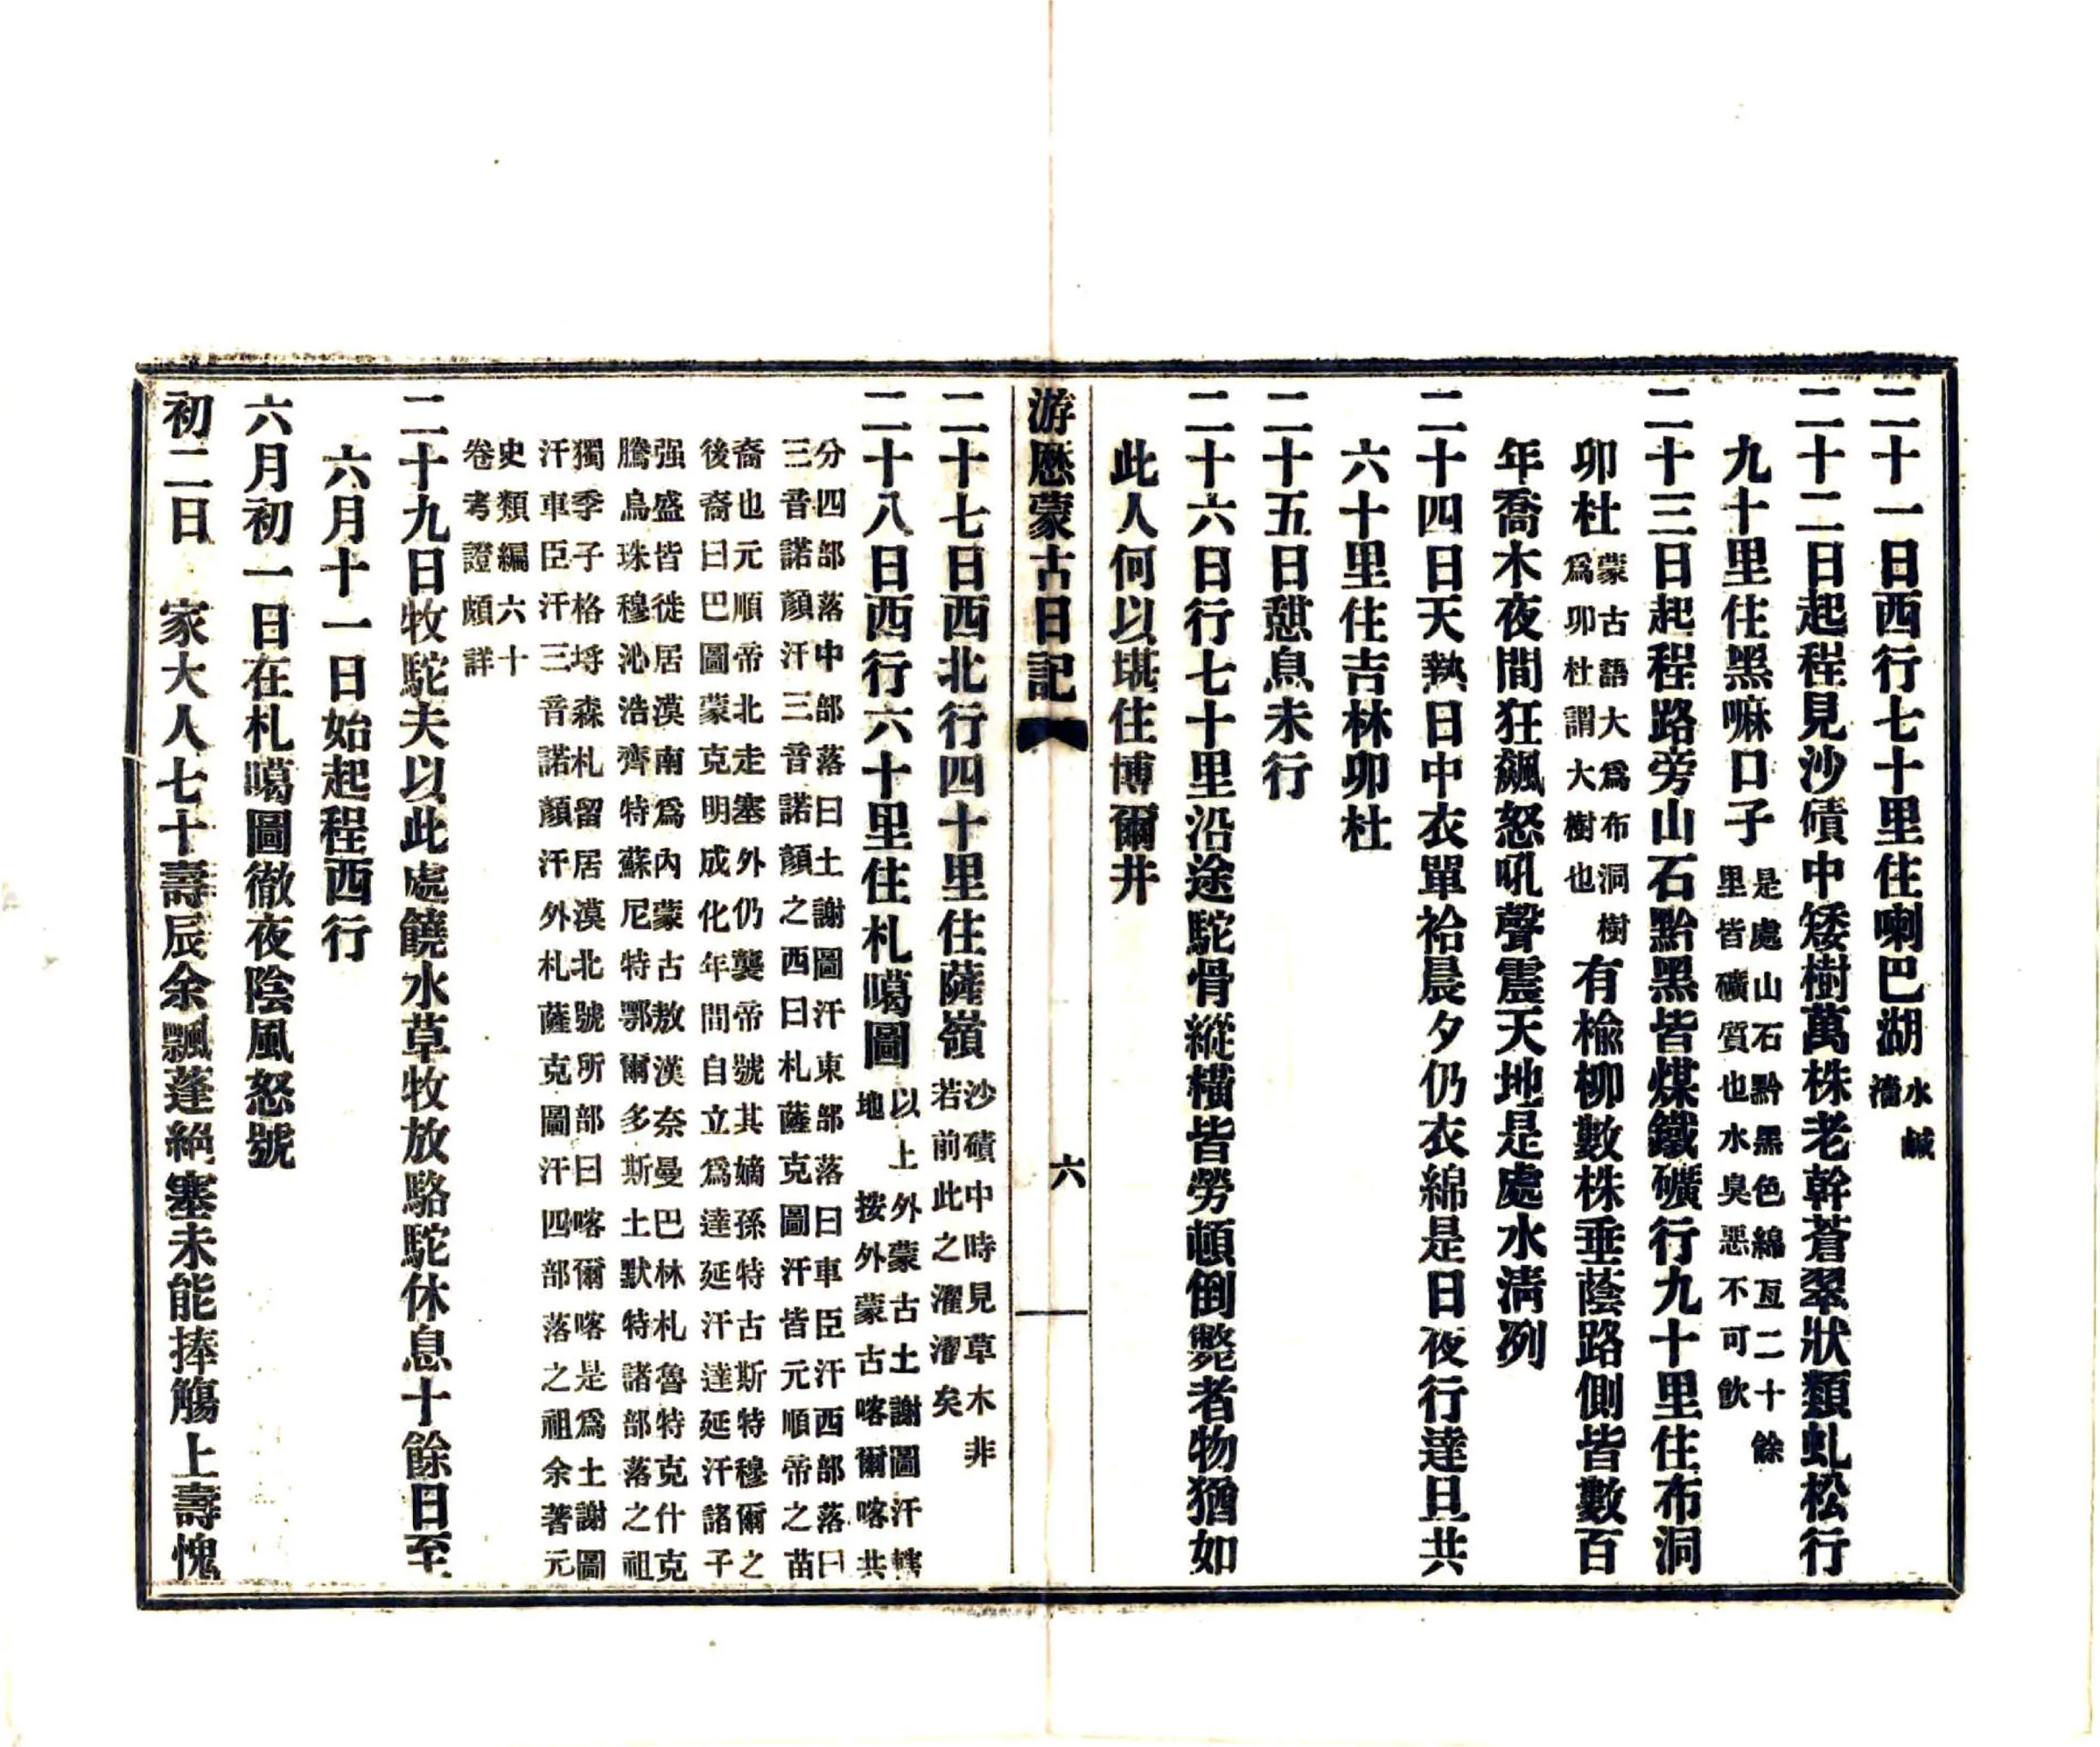 二十一日西行七十里住喇巴湖水鹹濇
二十二日起程見沙磧中矮樹萬株老幹蒼翠狀類虬松行
九十里住黑嘛口子是處山石黔黑色綿亙二十餘里皆礦質也水臭惡不可飲
二十三日起程路旁山石黔黑皆煤鐵礦行九十里住布洞
卯杜蒙古語大爲布洞樹爲卯杜謂大樹也有楡柳數株垂蔭路側皆數百
年喬木夜間狂飆怒吼聲震天地是處水淸冽
二十四日天熱日中衣單袷晨夕仍衣綿是日夜行達旦共
六十里住吉林卯杜
二十五日憩息未行
二十六日行七十里沿途駝骨縱橫皆勞頓倒斃者物猶如
此人何以堪住博爾井
游歷蒙古日記
六
二十七日西北行四十里住薩嶺沙磧中時見草木非若前此之濯濯矣
二十八日西行六十里住札噶圖以上外蒙古土謝圖汗轄地 按外蒙古喀爾喀共
分四部落中部落曰土謝圖汗東部落曰車臣汗西部落曰
三音諾顏汗三音諾顏之西曰札薩克圖汗皆元順帝之苗
裔也元順帝北走塞外仍襲帝號其嫡孫特古斯特穆爾之
後裔曰巴圖蒙克明成化年間自立爲達延汗達延汗諸子
强盛皆徙居漠南爲內蒙古敖漢奈曼巴林札魯特克什克
騰烏珠穆沁浩齊特蘇尼特鄂爾多斯土默特諸部落之祖
獨季子格埒森札留居漠北號所部曰喀爾喀是爲土謝圖
汗車臣汗三音諾顏汗外札薩克圖汗四部落之祖余著元
史類編六十
卷考證頗詳
二十九日牧駝夫以此處饒水草牧放駱駝休息十餘日至
六月十一日始起程西行
六月初一日在札噶圖徹夜陰風怒號
初二日 家大人七十壽辰余飄蓬絕塞未能捧觴上壽愧